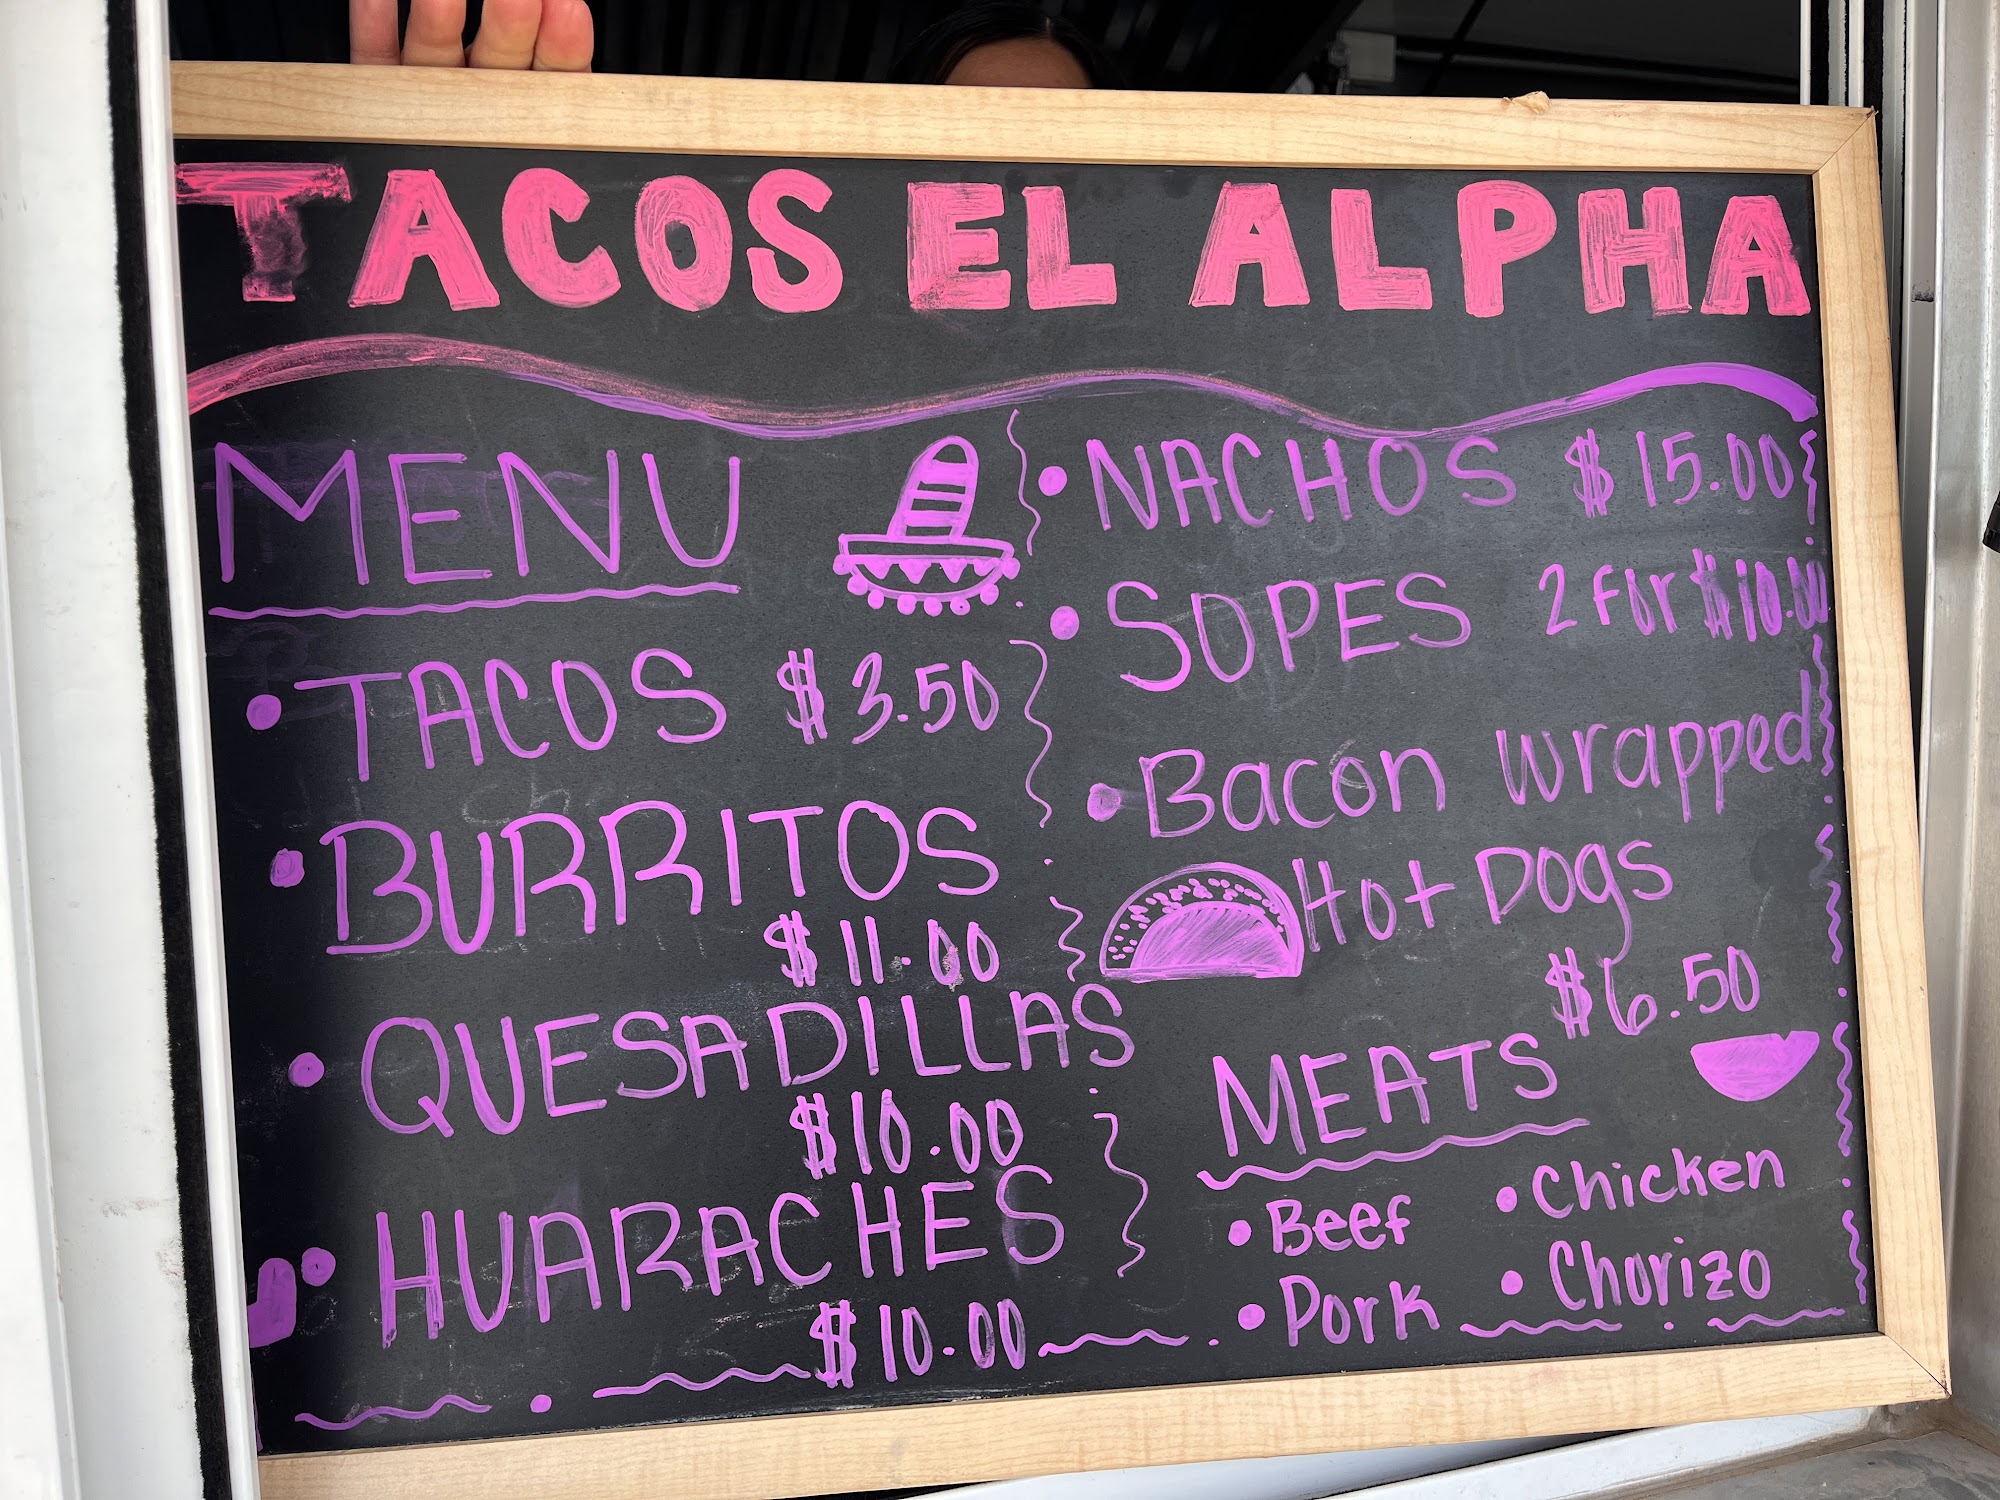 TACOS EL ALPHA
MENU
• TACOS $3.50
• BURRITOS
$11.00
• QUESADILLAS
$10.00
• HUARACHES
$10.00
• NACHOS $15.00
• SOPES 2 for $10.00
• Bacon wrapped
Hot Dogs
$6.50
MEATS
• Beef • Chicken
• Pork • Chorizo